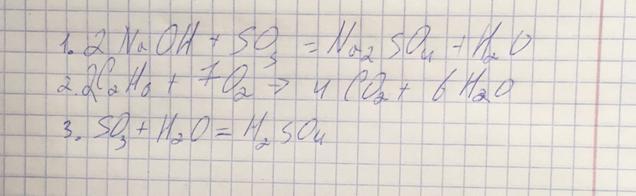 1. 2 NaOH + SO3 = Na2SO4 + H2O
2. 2C2H6 + 7O2 → 4CO2 + 6H2O
3. SO3 + H2O = H2SO4